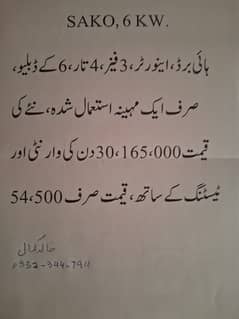 SAKO, 6 KW.
ہائی برڈ، اینورٹر، 3 فیز، 4 تار، 6 کے ڈبلیو،
صرف ایک مہینہ استعمال شدہ، نئے کی
قیمت 165،000، 30 دن کی وارنٹی اور
ٹیسٹنگ کے ساتھ، قیمت صرف 54،500